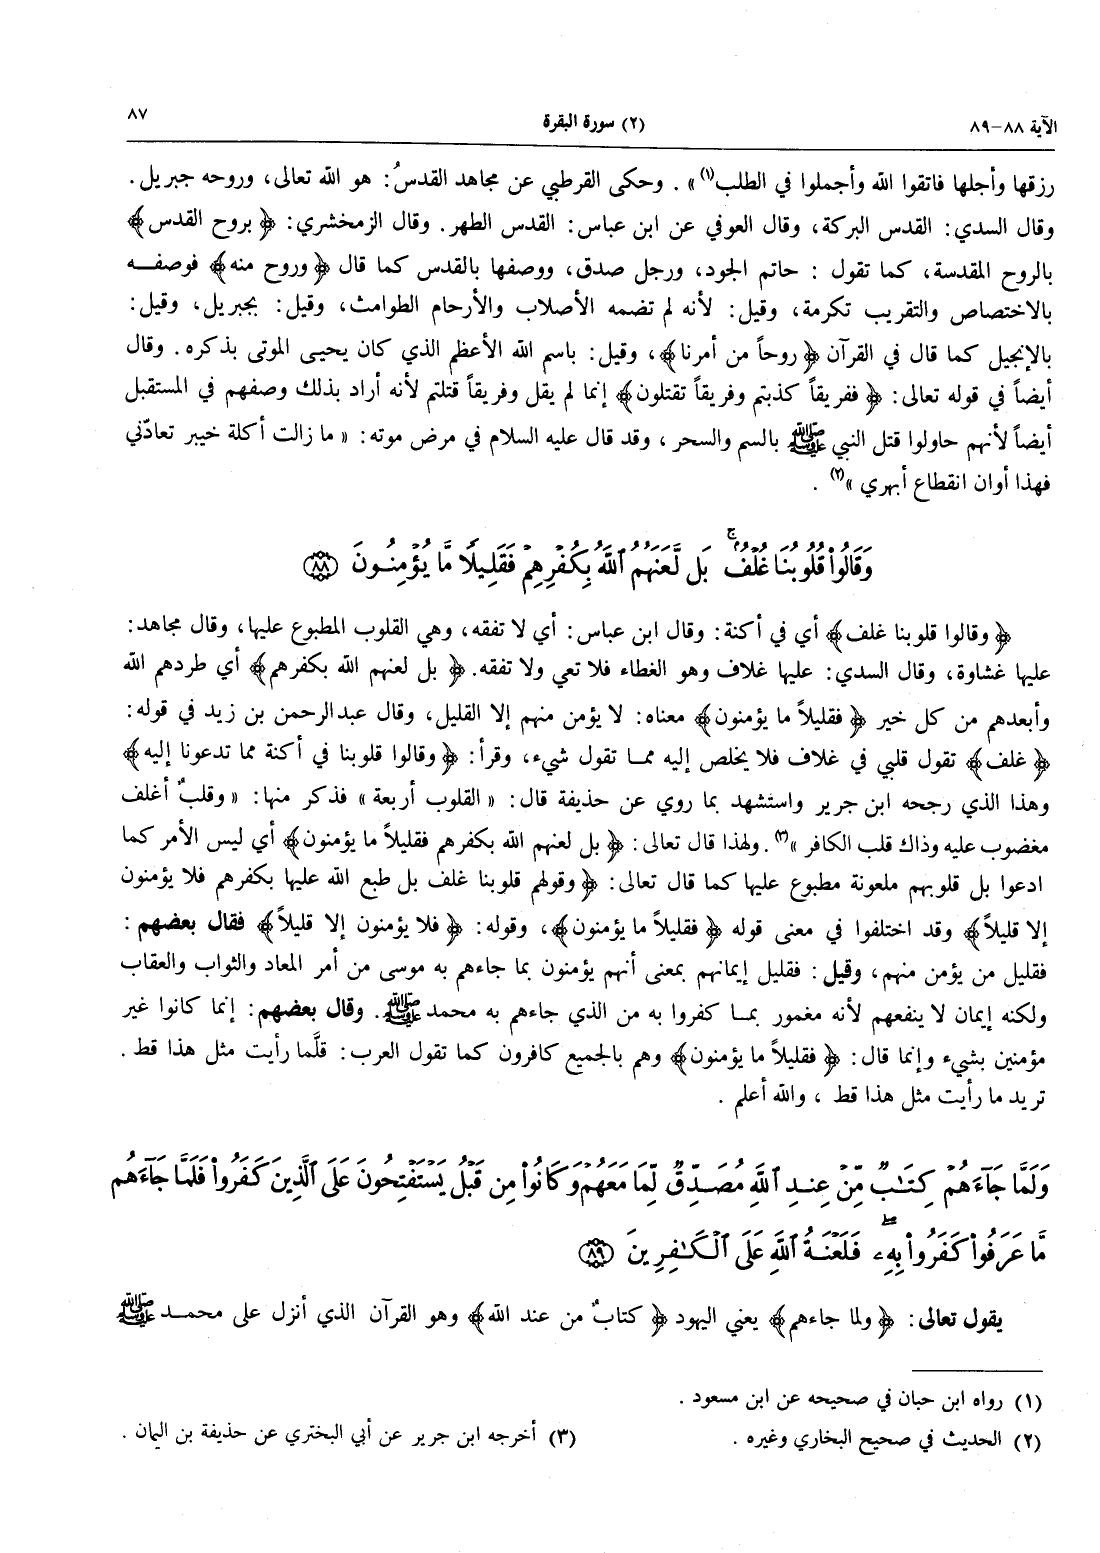 الآية ٨٨-٨٩ (٢) سورة البقرة ٨٧
رزقها وأجلها فاتقوا الله وأجملوا في الطلب(١)» . وحكى القرطبي عن مجاهد القدسُ: هو الله تعالى، وروحه جبريل.
وقال السدي: القدس البركة، وقال العوفي عن ابن عباس: القدس الطهر. وقال الزمخشري: ﴿بروح القدس﴾
بالروح المقدسة، كما تقول : حاتم الجود، ورجل صدق، ووصفها بالقدس كما قال ﴿وروح منه﴾ فوصفه
بالاختصاص والتقريب تكرمة، وقيل: لأنه لم تضمه الأصلاب والأرحام الطوامث، وقيل: بجبريل، وقيل:
بالإنجيل كما قال في القرآن ﴿روحاً من أمرنا﴾، وقيل: باسم الله الأعظم الذي كان يحيـى الموتى بذكره. وقال
أيضاً في قوله تعالى: ﴿ ففريقاً كذبتم وفريقاً تقتلون﴾ إنما لم يقل وفريقاً قتلتم لأنه أراد بذلك وصفهم في المستقبل
أيضاً لأنهم حاولوا قتل النبي ﷺ بالسم والسحر ، وقد قال عليه السلام في مرض موته: « ما زالت أكلة خيبر تعادّني
فهذا أوان انقطاع أبهري »(٢) .
وَقَالُوا۟ قُلُوبُنَا غُلْفٌۢ ۚ بَل لَّعَنَهُمُ ٱللَّهُ بِكُفْرِهِمْ فَقَلِيلًا مَّا يُؤْمِنُونَ ٨٨
﴿ وقالوا قلوبنا غلف﴾ أي في أكنة: وقال ابن عباس: أي لا تفقه، وهي القلوب المطبوع عليها، وقال مجاهد:
عليها غشاوة، وقال السدي: عليها غلاف وهو الغطاء فلا تعي ولا تفقه. ﴿ بل لعنهم الله بكفرهم﴾ أي طردهم الله
وأبعدهم من كل خير ﴿ فقليلاً ما يؤمنون﴾ معناه: لا يؤمن منهم إلا القليل، وقال عبدالرحمن بن زيد في قوله:
﴿ غلف﴾ تقول قلبي في غلاف فلا يخلص إليه ممـا تقول شيء، وقرأ: ﴿ وقالوا قلوبنا في أكنة مما تدعونا إليه﴾
وهذا الذي رجحه ابن جرير واستشهد بما روي عن حذيفة قال: « القلوب أربعة » فذكر منها: « وقلبٌ أغلف
مغضوب عليه وذاك قلب الكافر »(٣) . ولهذا قال تعالى: ﴿ بل لعنهم الله بكفرهم فقليلاً ما يؤمنون﴾ أي ليس الأمر كما
ادعوا بل قلوبهم ملعونة مطبوع عليها كما قال تعالى: ﴿ وقولهم قلوبنا غلف بل طبع الله عليها بكفرهم فلا يؤمنون
إلا قليلاً﴾ وقد اختلفوا في معنى قوله ﴿ فقليلاً ما يؤمنون﴾، وقوله: ﴿ فلا يؤمنون إلا قليلاً﴾ فقال بعضهم :
فقليل من يؤمن منهم، وقيل : فقليل إيمانهم بمعنى أنهم يؤمنون بما جاءهم به موسى من أمر المعاد والثواب والعقاب
ولكنه إيمان لا ينفعهم لأنه مغمور بمـا كفروا به من الذي جاءهم به محمد ﷺ. وقال بعضهم: إنما كانوا غير
مؤمنين بشيء وإنما قال: ﴿ فقليلاً ما يؤمنون﴾ وهم بالجميع كافرون كما تقول العرب: قلَّما رأيت مثل هذا قط .
تريد ما رأيت مثل هذا قط ، والله أعلم .
وَلَمَّا جَآءَهُمْ كِتَـٰبٌ مِّنْ عِندِ ٱللَّهِ مُصَدِّقٌ لِّمَا مَعَهُمْ وَكَانُوا۟ مِن قَبْلُ يَسْتَفْتِحُونَ عَلَى ٱلَّذِينَ كَفَرُوا۟ فَلَمَّا جَآءَهُم
مَّا عَرَفُوا۟ كَفَرُوا۟ بِهِۦ ۖ فَلَعْنَةُ ٱللَّهِ عَلَى ٱلْكَـٰفِرِينَ ٨٩
يقول تعالى: ﴿ ولما جاءهم﴾ يعني اليهود ﴿ كتابٌ من عند الله﴾ وهو القرآن الذي أنزل على محمـد ﷺ
(١) رواه ابن حبان في صحيحه عن ابن مسعود .
(٢) الحديث في صحيح البخاري وغيره . (٣) أخرجه ابن جرير عن أبي البختري عن حذيفة بن اليمان .